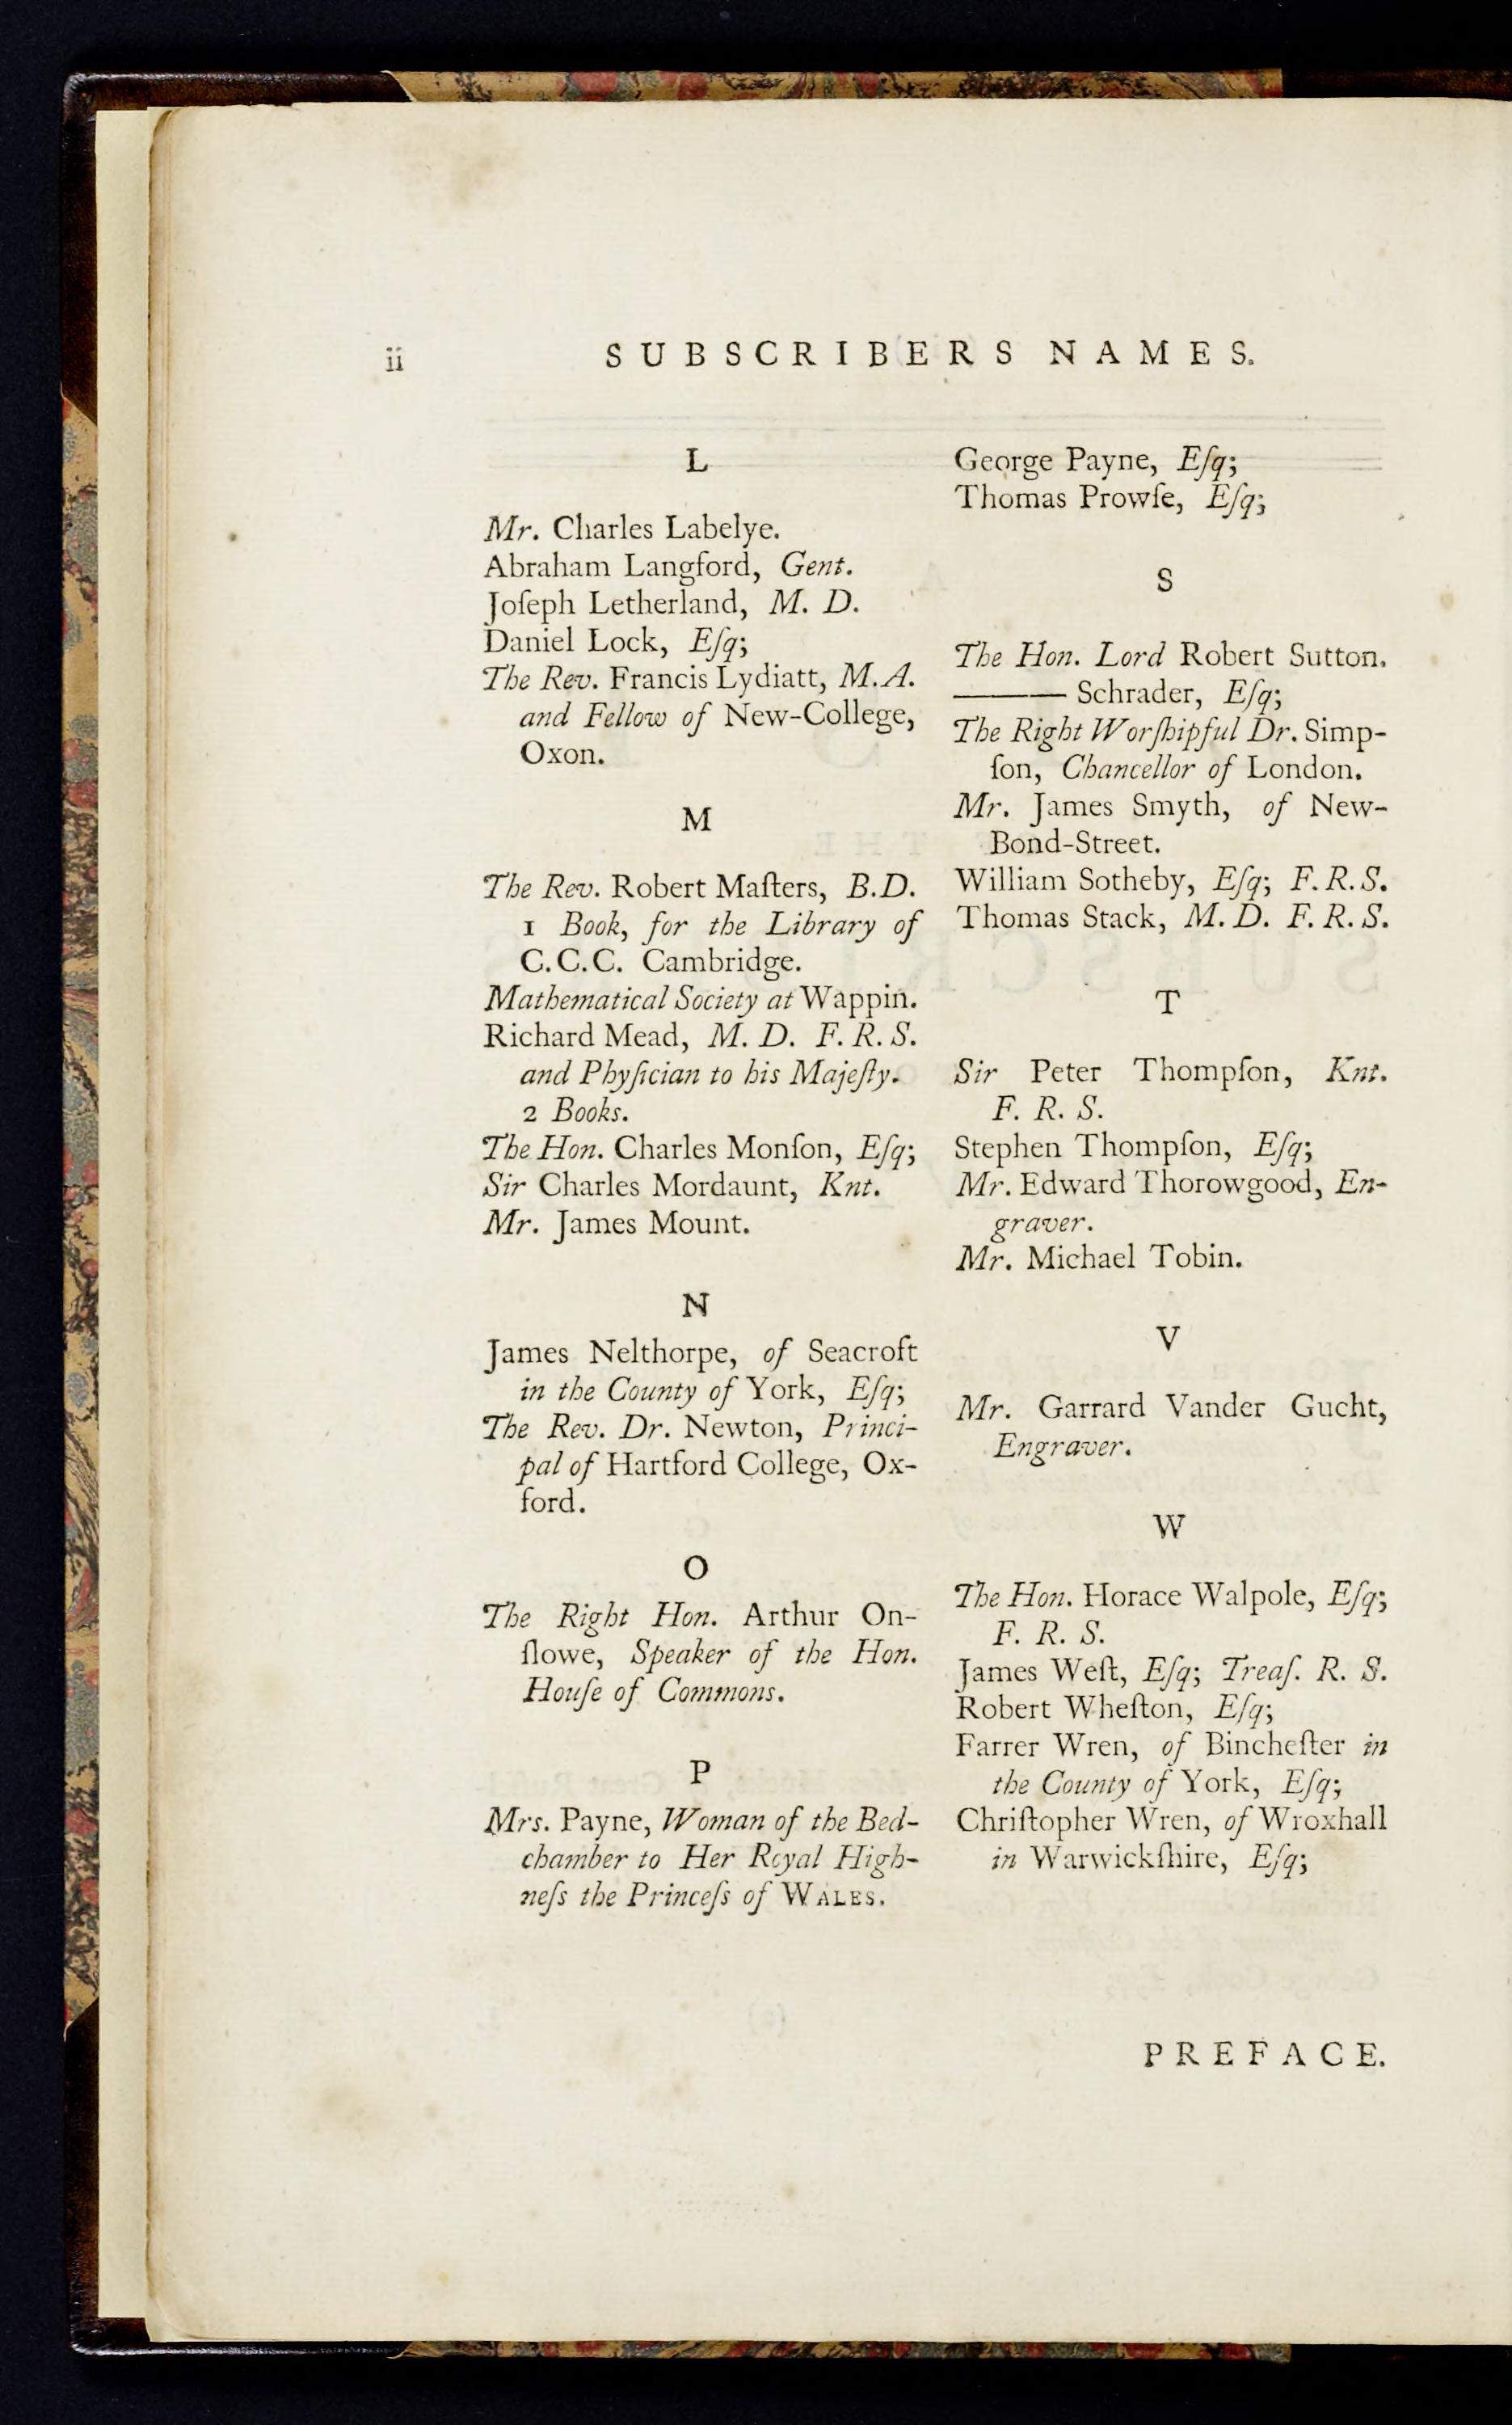 ii
SUBSCRIBERS NAMES.
L
Mr. Charles Labelye.
Abraham Langford, Gent.
Joſeph Letherland, M. D.
Daniel Lock, Eſq;
The Rev. Francis Lydiatt, M.A.
and Fellow of New-College,
Oxon.
M
The Rev. Robert Maſters, B.D.
1 Book, for the Library of
C.C.C. Cambridge.
Mathematical Society at Wappin.
Richard Mead, M. D. F. R. S.
and Phyſician to his Majeſty.
2 Books.
The Hon. Charles Monſon, Eſq;
Sir Charles Mordaunt, Knt.
Mr. James Mount.
N
James Nelthorpe, of Seacroft
in the County of York, Eſq;
The Rev. Dr. Newton, Princi-
pal of Hartford College, Ox-
ford.
O
The Right Hon. Arthur On-
ſlowe, Speaker of the Hon.
Houſe of Commons.
P
Mrs. Payne, Woman of the Bed-
chamber to Her Royal High-
neſs the Princeſs of WALES.
George Payne, Eſq;
Thomas Prowſe, Eſq;
S
The Hon. Lord Robert Sutton.
——— Schrader, Eſq;
The Right Worſhipful Dr. Simp-
ſon, Chancellor of London.
Mr. James Smyth, of New-
Bond-Street.
William Sotheby, Eſq; F. R. S.
Thomas Stack, M. D. F. R. S.
T
Sir Peter Thompſon, Knt.
F. R. S.
Stephen Thompſon, Eſq;
Mr. Edward Thorowgood, En-
graver.
Mr. Michael Tobin.
V
Mr. Garrard Vander Gucht,
Engraver.
W
The Hon. Horace Walpole, Eſq;
F. R. S.
James Weſt, Eſq; Treaſ. R. S.
Robert Wheſton, Eſq;
Farrer Wren, of Bincheſter in
the County of York, Eſq;
Chriſtopher Wren, of Wroxhall
in Warwickſhire, Eſq;
PREFACE.